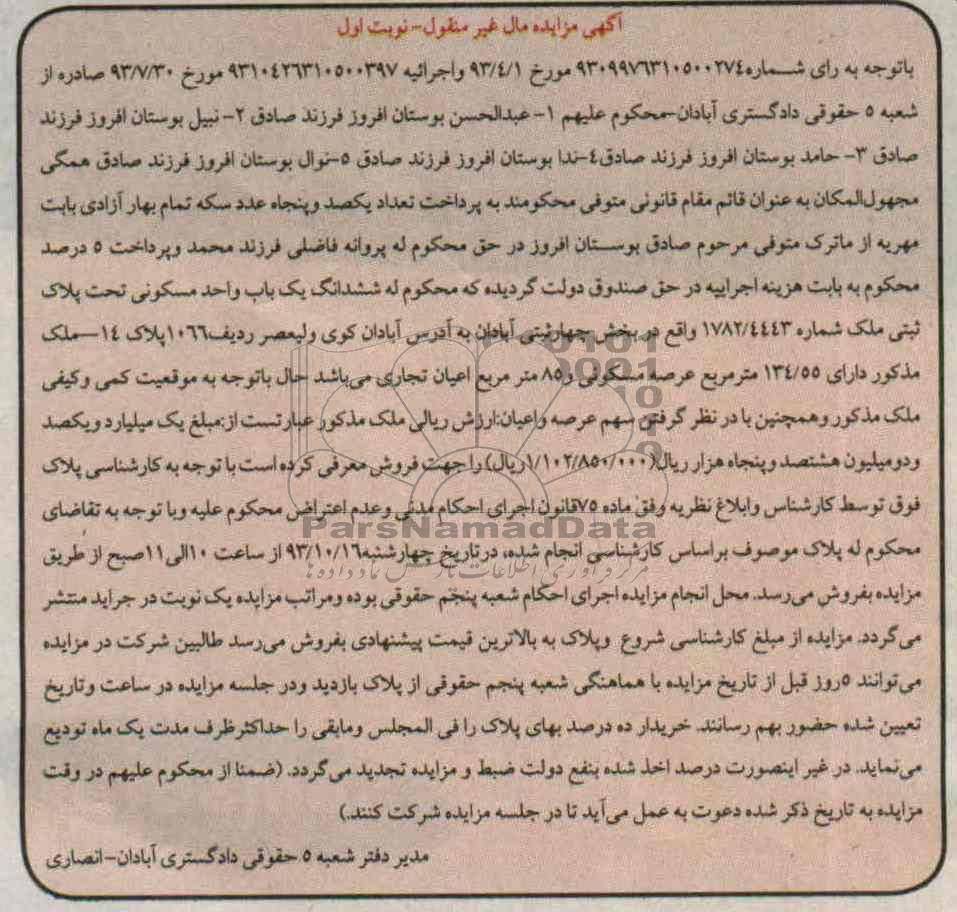 آگهی مزایده مال غیر منقول- نوبت اول
باتوجه به رای شـــماره۹۳۰۹۹۷۶۳۱۰۵۰۰۲۷۴ مورخ ۹۳/۴/۱ واجرائیه ۹۳۱۰۴۲۶۳۱۰۵۰۰۳۹۷ مورخ ۹۳/۷/۳۰ صادره از
شعبه ۵ حقوقی دادگستری آبادان-محکوم علیهم ۱- عبدالحسن بوستان افروز فرزند صادق ۲- نبیل بوستان افروز فرزند
صادق ۳- حامد بوستان افروز فرزند صادق۴-ندا بوستان افروز فرزند صادق ۵-نوال بوستان افروز فرزند صادق همگی
مجهول‌المکان به عنوان قائم مقام قانونی متوفی محکومند به پرداخت تعداد یکصد وپنجاه عدد سکه تمام بهار آزادی بابت
مهریه از ماترک متوفی مرحوم صادق بوســتان افروز در حق محکوم له پروانه فاضلی فرزند محمد وپرداخت ۵ درصد
محکوم به بابت هزینه اجراییه در حق صندوق دولت گردیده که محکوم له ششدانگ یک باب واحد مسکونی تحت پلاک
ثبتی ملک شماره ۱۷۸۲/۴۴۴۳ واقع در بخش چهارثبتی آبادان به آدرس آبادان کوی ولیعصر ردیف۱۰۶۶پلاک ۱۴—ملک
مذکور دارای ۱۳۴/۵۵ مترمربع عرصه مسکونی و۸۵ متر مربع اعیان تجاری می‌باشد حال باتوجه به موقعیت کمی وکیفی
ملک مذکور وهمچنین با در نظر گرفتن سهم عرصه واعیان:ارزش ریالی ملک مذکور عبارتست از:مبلغ یک میلیارد ویکصد
ودومیلیون هشتصد وپنجاه هزار ریال(۱/۱۰۲/۸۵۰/۰۰۰ریال) را جهت فروش معرفی کرده است با توجه به کارشناسی پلاک
فوق توسط کارشناس وابلاغ نظریه وفق ماده ۷۵قانون اجرای احکام مدنی وعدم اعتراض محکوم علیه وبا توجه به تقاضای
محکوم له پلاک موصوف براساس کارشناسی انجام شده، درتاریخ چهارشنبه۹۳/۱۰/۱۶ از ساعت ۱۰الی۱۱صبح از طریق
مزایده بفروش می‌رسد. محل انجام مزایده اجرای احکام شعبه پنجم حقوقی بوده ومراتب مزایده یک نوبت در جراید منتشر
می‌گردد. مزایده از مبلغ کارشناسی شروع وپلاک به بالاترین قیمت پیشنهادی بفروش می‌رسد طالبین شرکت در مزایده
می‌توانند ۵روز قبل از تاریخ مزایده با هماهنگی شعبه پنجم حقوقی از پلاک بازدید ودر جلسه مزایده در ساعت وتاریخ
تعیین شده حضور بهم رسانند. خریدار ده درصد بهای پلاک را فی المجلس ومابقی را حداکثرظرف مدت یک ماه تودیع
می‌نماید. در غیر اینصورت درصد اخذ شده بنفع دولت ضبط و مزایده تجدید می‌گردد. (ضمنا از محکوم علیهم در وقت
مزایده به تاریخ ذکر شده دعوت به عمل می‌آید تا در جلسه مزایده شرکت کنند.)
مدیر دفتر شعبه ۵ حقوقی دادگستری آبادان-انصاری
ParsNamadData